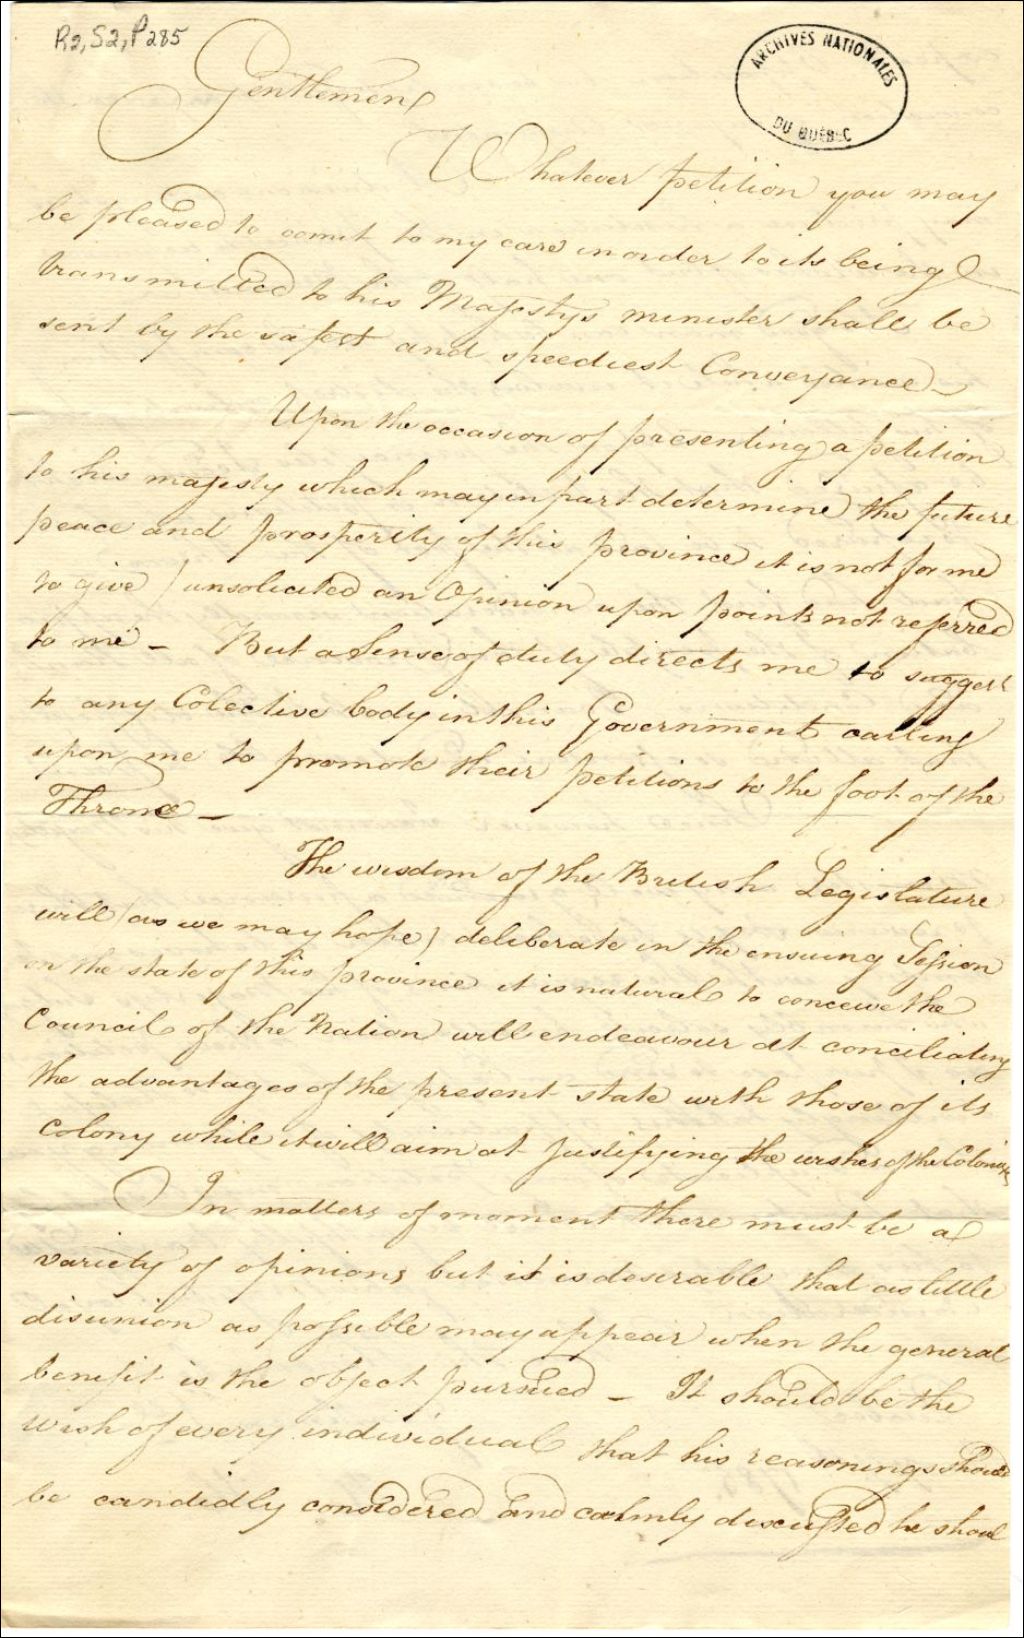 R2, S2, P285
ARCHIVES NATIONALES
DU QUÉBEC
Gentlemen
Whatever petition you may
be pleased to comit to my care in order to its being
transmitted to his Majestys minister shall be
sent by the safest and speediest Conveyance –
Upon the occasion of presenting a petition
to his majesty which may in part determine the future
peace and prosperity of this province it is not for me
to give / unsolicited an Opinion upon points not referred
to me – But a Sense of duty directs me to suggest
to any Colective body in this Government calling
upon me to promote their petitions to the foot of the
Throne –
The wisdom of the British Legislature
will (as we may hope) deliberate in the ensuing Session
on the state of this province it is natural to conceive the
Council of the Nation will endeavour at conciliating
the advantages of the present state with those of its
Colony while it will aim at justifying the wishes of the Colonists
In matters of moment there must be a
variety of opinions but it is desirable that as little
disunion as possible may appear when the general
benefit is the object pursued – It should be the
wish of every individual that his reasonings should
be candidly considered and calmly discussed he shoul